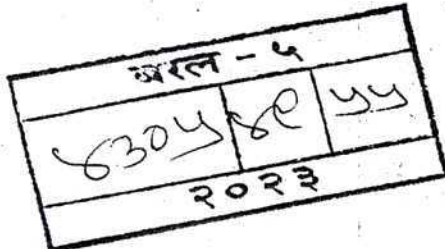 बरल - ५
४३०५ ४९ ५५
२०२३